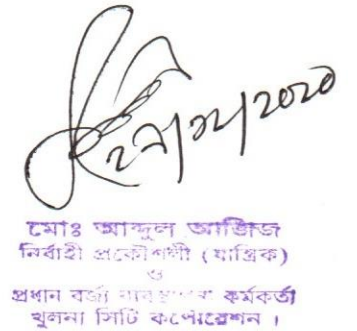 ২৯/১২/২০২০
মোঃ আব্দুল আজিজ
নির্বাহী প্রকৌশলী (যান্ত্রিক)
ও
প্রধান বর্জ্য ব্যবস্থাপনা কর্মকর্তা
খুলনা সিটি কর্পোরেশন।